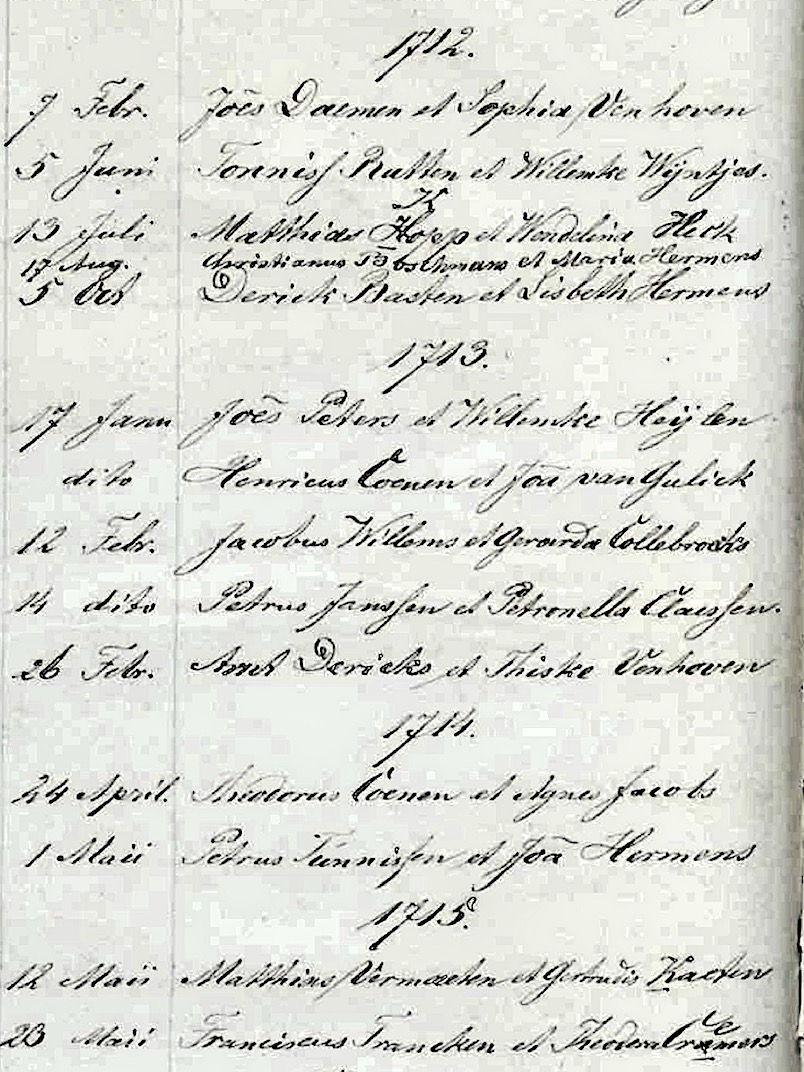 1712.
7 Febr. Joēs Daemen et Sophia Venhoven
5 Juni Tonniss Rutten et Willemke Wijntjes.
13 Juli Matthias Hopp et Wendelina Herk
17 Aug. Christianus et Maria Hermens
5 Oct Derick Basten et Lisbeth Hermens
1713.
17 Janu Joēs Peters et Willemke Heijlen
dito Henricus Coenen et Joā van Gulick
12 Febr. Jacobus Willems et Gerarda Collebrocks
14 dito Petrus Janssen et Petronella Claessen.
26 Febr. Arret Dericks et Thiske Venhoven
1714.
24 April. Theodorus Coenen et Agnes Jacobs
1 Maii Petrus Tünnissen et Joā Hermens
1715.
12 Maii Matthias Vermaeten et Gertrudis Kaeten
23 Maii Franciscus Francken et Theodera Cremers